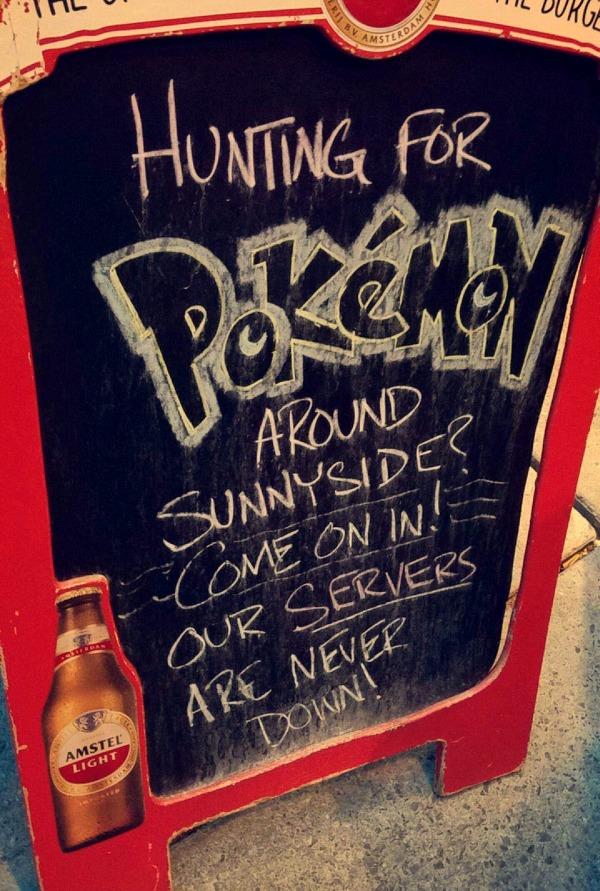 BV AMSTERDAM
HUNTING FOR
POKéMON
AROUND
SUNNYSIDE?
COME ON IN!
OUR SERVERS
ARE NEVER
DOWN!
AMSTERDAM
AMSTEL
LIGHT
IMPORTED